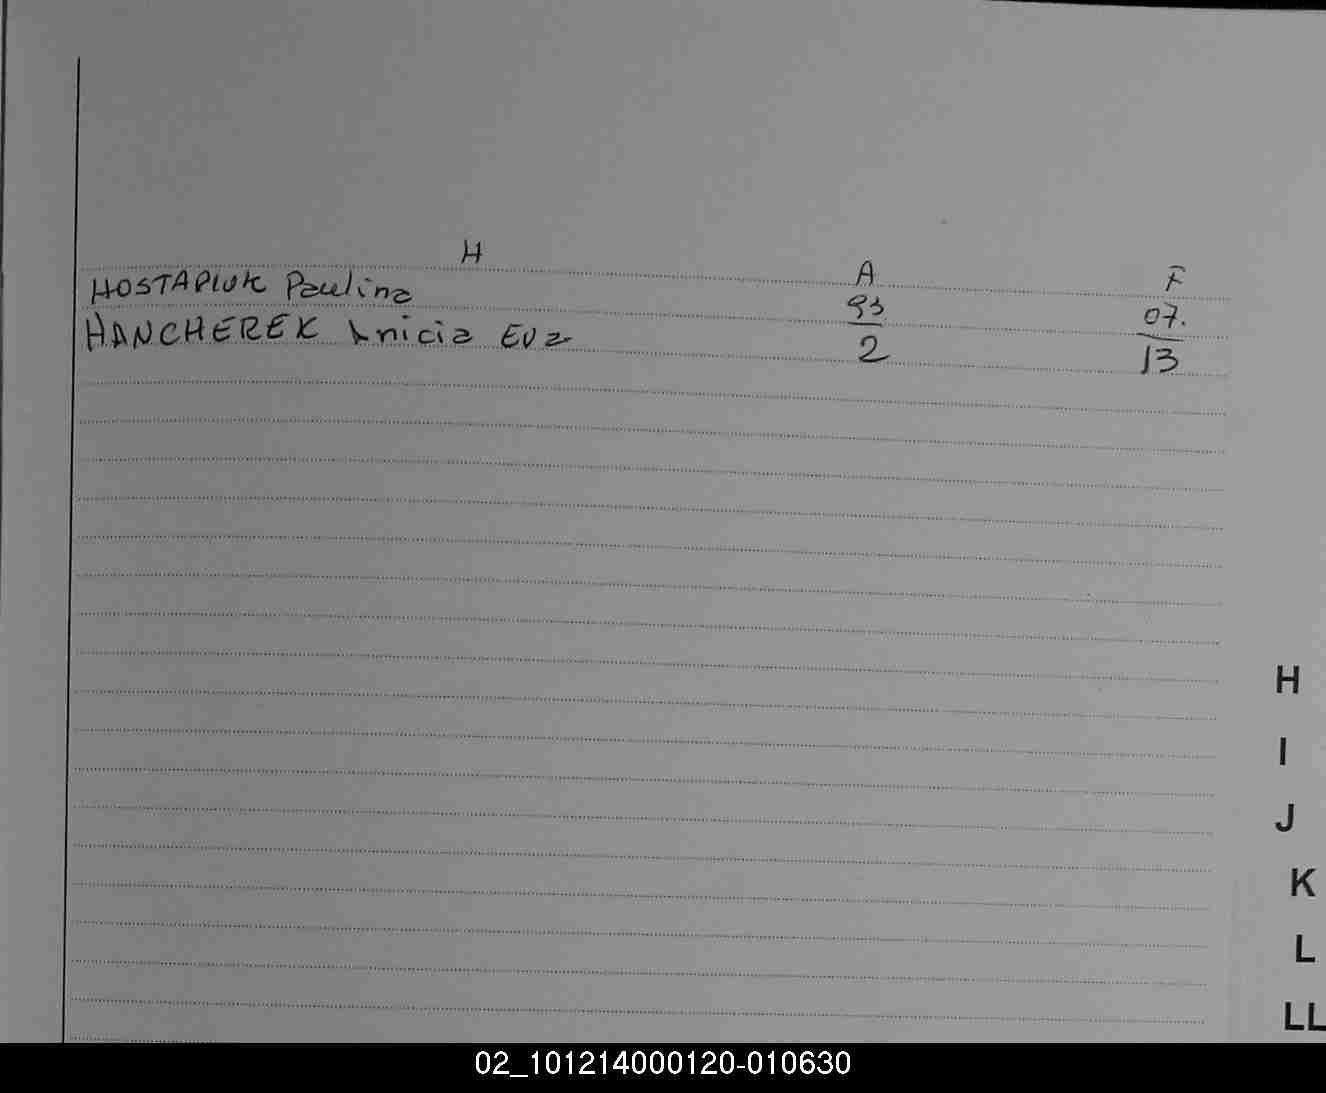 H A F
HOSTAPIUK Paulina 93 07.
HANCHEREK Anicia Eva 2 13
H
I
J
K
L
LL
02_101214000120-010630